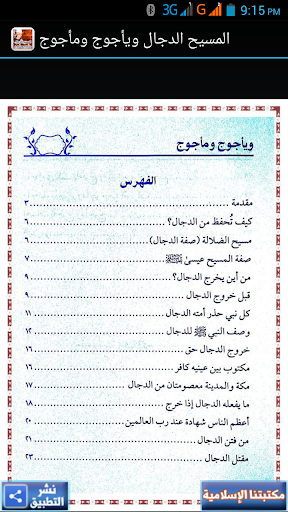 3G G 9:15 PM
المسيح الدجال ويأجوج ومأجوج
ويأجوج ومأجوج
الفهرس
مقدمة ........ ٣
كيف تُحفظ من الدجال؟ ........ ٦
مسيح الضلالة (صفة الدجال) ........ ٦
صفة المسيح عيسىٰ ﷺ ........ ٧
من أين يخرج الدجال؟ ........ ٩
قبل خروج الدجال ........ ٩
كل نبي حذر أمته الدجال ........ ١١
وصف النبي ﷺ للدجال ........ ١٢
خروج الدجال حق ........ ١٦
مكتوب بين عينيه كافر ........ ١٦
مكة والمدينة معصومتان من الدجال ........ ١٧
ما يفعله الدجال إذا خرج ........ ١٨
أعظم الناس شهادة عند رب العالمين ........ ٢٠
من فتن الدجال ........ ٢١
مقتل الدجال ........ ٢٣
مكتبتنا الإسلامية
نشر التطبيق